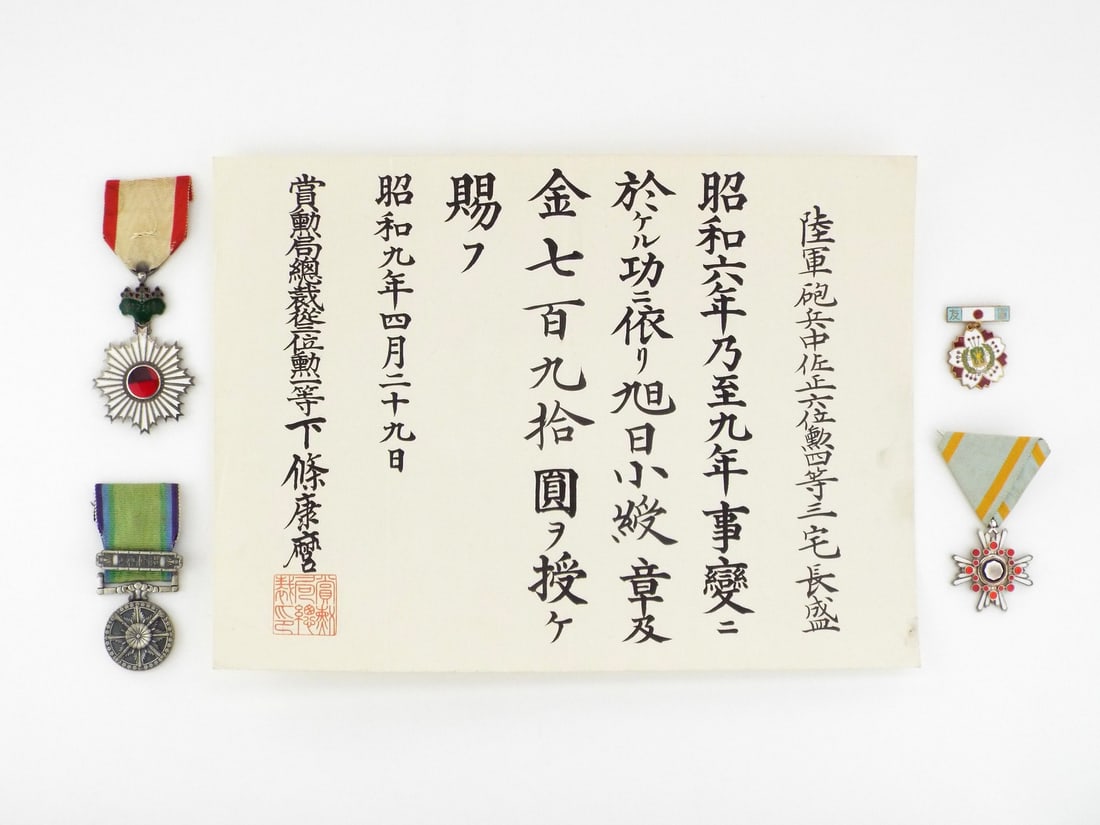 陸軍砲兵中佐正六位勲四等三宅長盛
昭和六年乃至九年事變ニ
於ケル功ニ依リ旭日小綬章及
金七百九拾圓ヲ授ケ
賜フ
昭和九年四月二十九日
賞勲局總裁從三位勲一等下條康麿
賞勲局總裁印
友